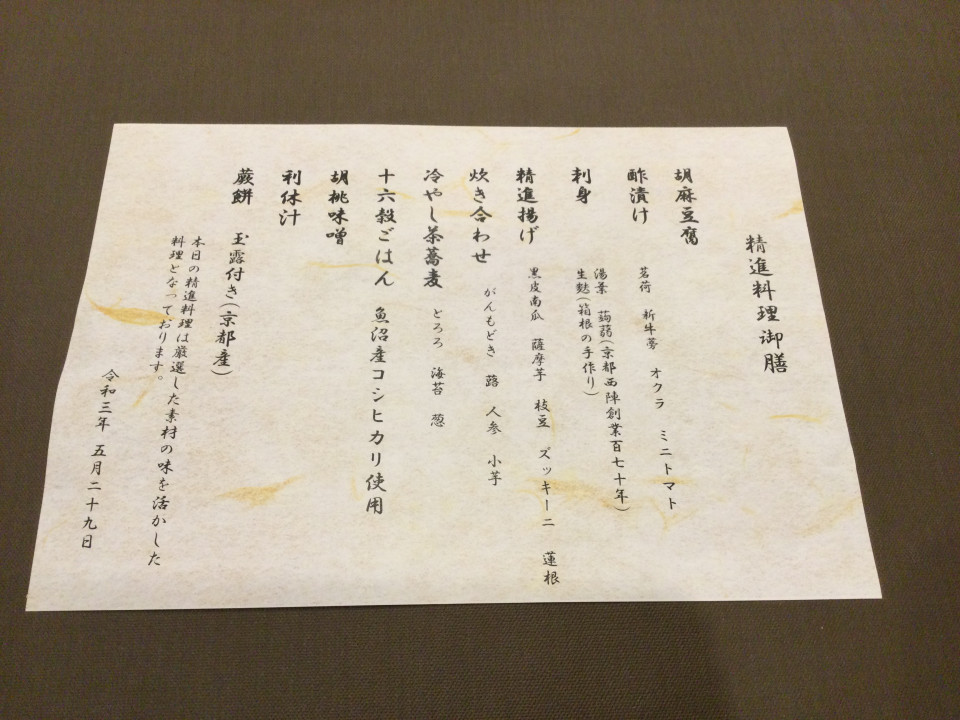 精進料理御膳
胡麻豆腐
酢漬け 茗荷 新牛蒡 オクラ ミニトマト
刺身 湯葉 蒟蒻(京都西陣創業百七十年)
生麩(箱根の手作り)
精進揚げ 黒皮南瓜 薩摩芋 枝豆 ズッキーニ 蓮根
炊き合わせ がんもどき 蕗 人参 小芋
冷やし茶蕎麦 とろろ 海苔 葱
十六穀ごはん 魚沼産コシヒカリ使用
胡桃味噌
利休汁
蕨餅 玉露付き(京都産)
本日の精進料理は厳選した素材の味を活かした
料理となっております。
令和三年 五月二十九日